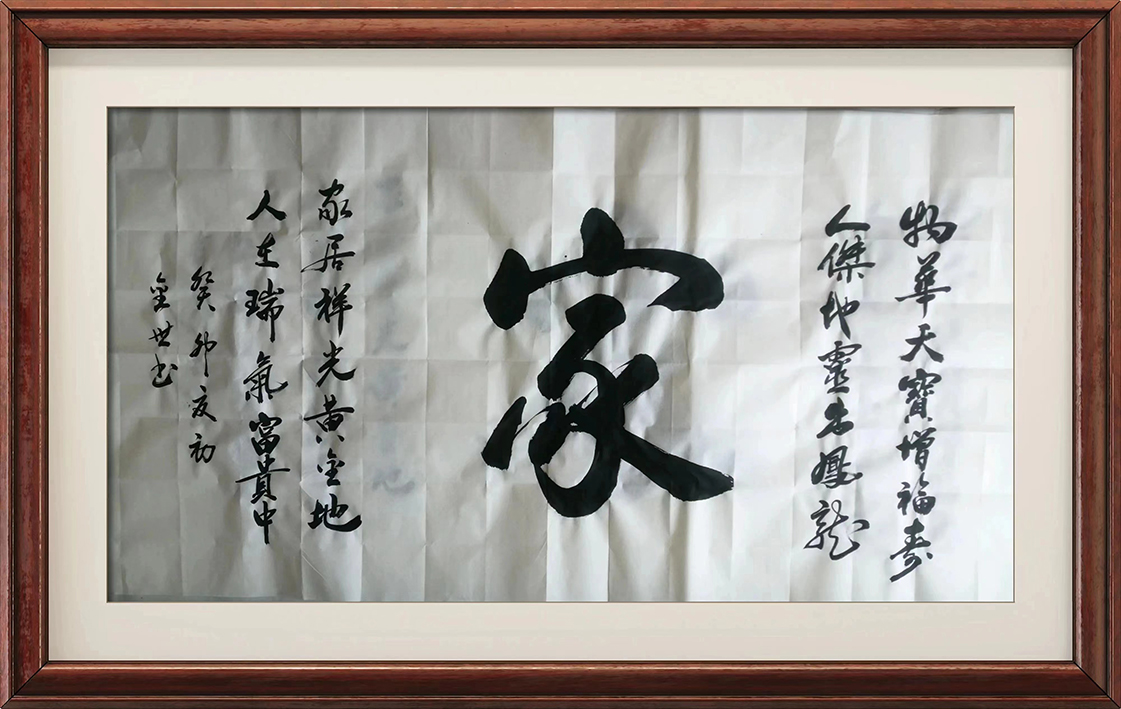 物華天寶增福壽
人傑地靈出鳳龍
家
家居祥光黄金地
人在瑞氣富貴中
癸卯夏初
金世书